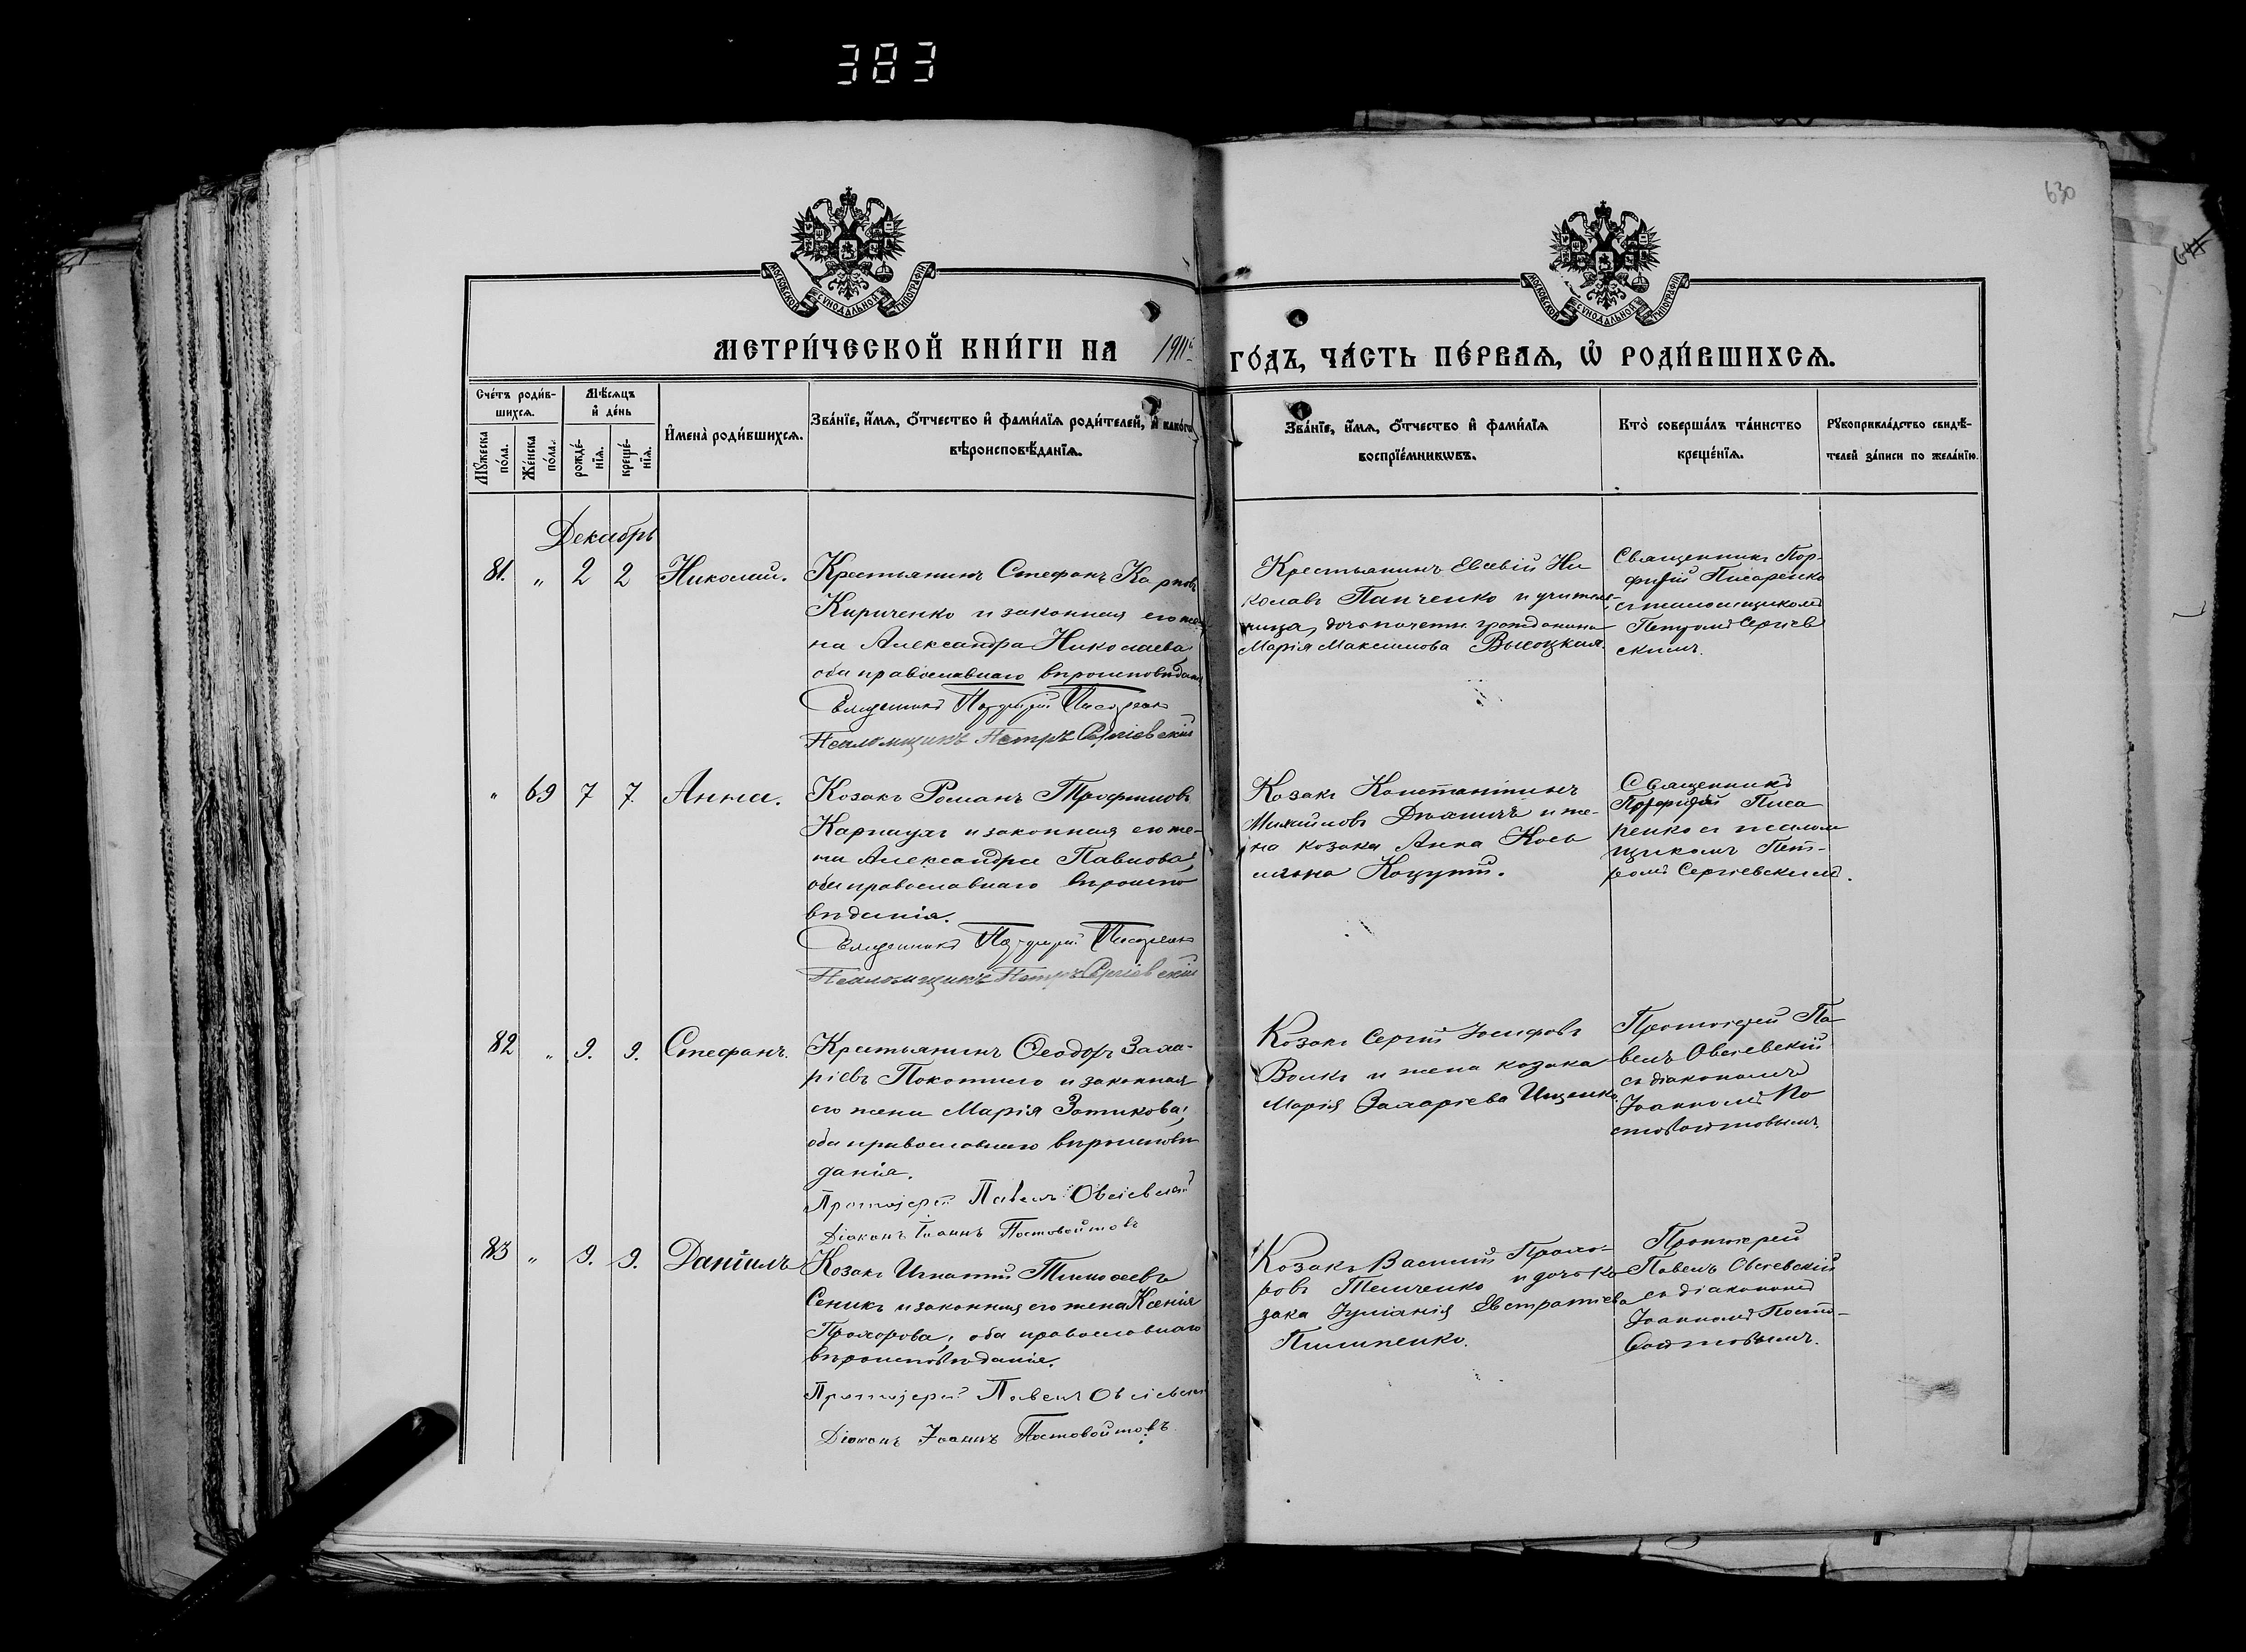 383
630
МОСКОВСКОЙ СѴНОДАЛЬНОЙ ТИПОГРАФІИ
МОСКОВСКОЙ СѴНОДАЛЬНОЙ ТИПОГРАФІИ
МЕТРИ́ЧЕСКОЙ КНИ́ГИ НА 1911
ГО́ДЪ, ЧА́СТЬ ПЕ́РВАѦ, Ѡ҆ РОДИ́ВШИХСѦ.
Сче́тъ роди́в-
шихсѧ.
Мꙋжеска
по́ла.
Же́нска
по́ла.
Мѣ́сѧцъ
и҆ де́нь
рожде́-
нїѧ.
креще́-
нїѧ.
И҆мена̀ роди́вшихсѧ.
Зва́нїе, и҆́мѧ, ѻ҆́тчество и҆ фами́лїѧ роди́телей, и҆ како́гѡ
вѣроисповѣ́данїѧ.
Зва́нїе, и҆́мѧ, ѻ҆́тчество и҆ фами́лїѧ
воспрїе́мникѡвъ.
Кто̀ соверша́лъ та́инство
креще́нїѧ.
Рꙋкоприкла́дство свидѣ́-
телей за́писи по жела́нїю.
Декабрь
81. „ 2 2 Николай.
Крестьянинъ Стефанъ Карповъ
Кириченко и законная его же-
на Александра Николаева,
оба православнаго вѣроисповѣдан.
Священникъ Порфирій Писаренко
Псаломщикъ Петръ Сергіевскій
Крестьянинъ Евсевій Ни
колаевъ Панченко и учитель-
ница, дочь почетн. гражданина
Марія Максимова Высоцкая.
Священникъ Пор-
фирій Писаренко
съ псаломщикомъ
Петромъ Сергіев
скимъ.
„ 69 7 7. Анна.
Козакъ Романъ Трофимовъ
Карнаухъ и законная его же-
на Александра Павлова,
оба православнаго вѣроиспо
вѣданія.
Священникъ Порфирій Писаренко
Псаломщикъ Петръ Сергіевскій
Козакъ Константинъ
Михайловъ и же-
на козака Анна Кось
мина
Священникъ
Порфирій Писа
ренко съ псалом
щикомъ Пет-
ромъ Сергіевскимъ.
82 „ 9. 9. Стефанъ.
Крестьянинъ Ѳеодоръ Заха-
ріевъ Покотило и законная
его жена Марія Зотикова,
оба православнаго вѣроисповѣ
данія.
Протоіерей Павелъ Овсіевскій
Діаконъ Іоаннъ Постовойтовъ
Козакъ Сергій Іосифовъ
Волкъ и жена козака
Марія Захаріева Ищенко
Протоіерей Па
велъ Овсіевскій
съ діакономъ
Іоанномъ По
стовойтовымъ.
83 „ 9. 9. Даніилъ
Козакъ Игнатій Тимоѳеевъ
Сеникъ и законная его жена Ксенія
Прохорова, оба православнаго
вѣроисповѣданія.
Протоіерей Павелъ Овсіевскій
Діаконъ Іоаннъ Постовойтовъ.
Козакъ Василій Прохо-
ровъ и дочь ко
зака Іуліанія Евстратіева
Пилипенко.
Протоіерей
Павелъ Овсіевскій
съ діакономъ
Іоанномъ Посто-
войтовымъ.